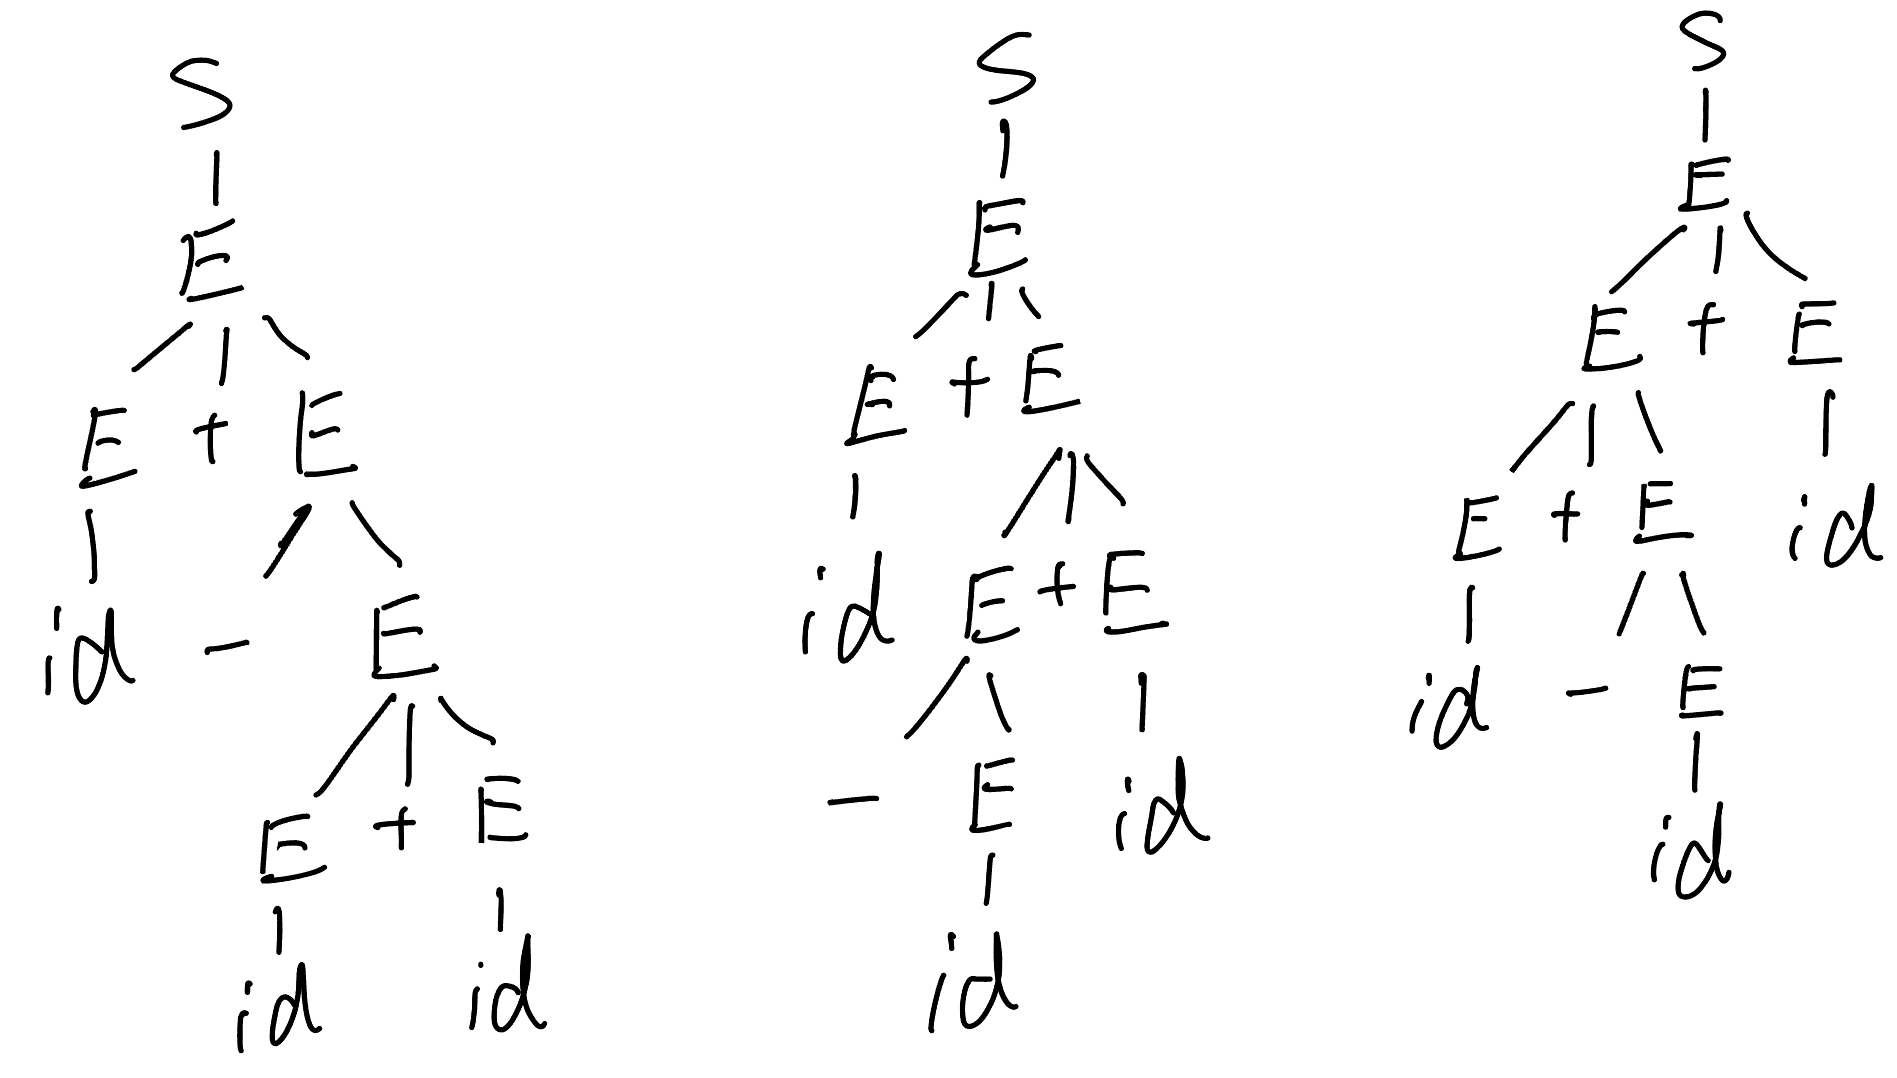 S
E
E + E
id - E
E + E
id id
S
E
E + E
id E + E
- E id
id
S
E
E + E
E + E id
id - E
id